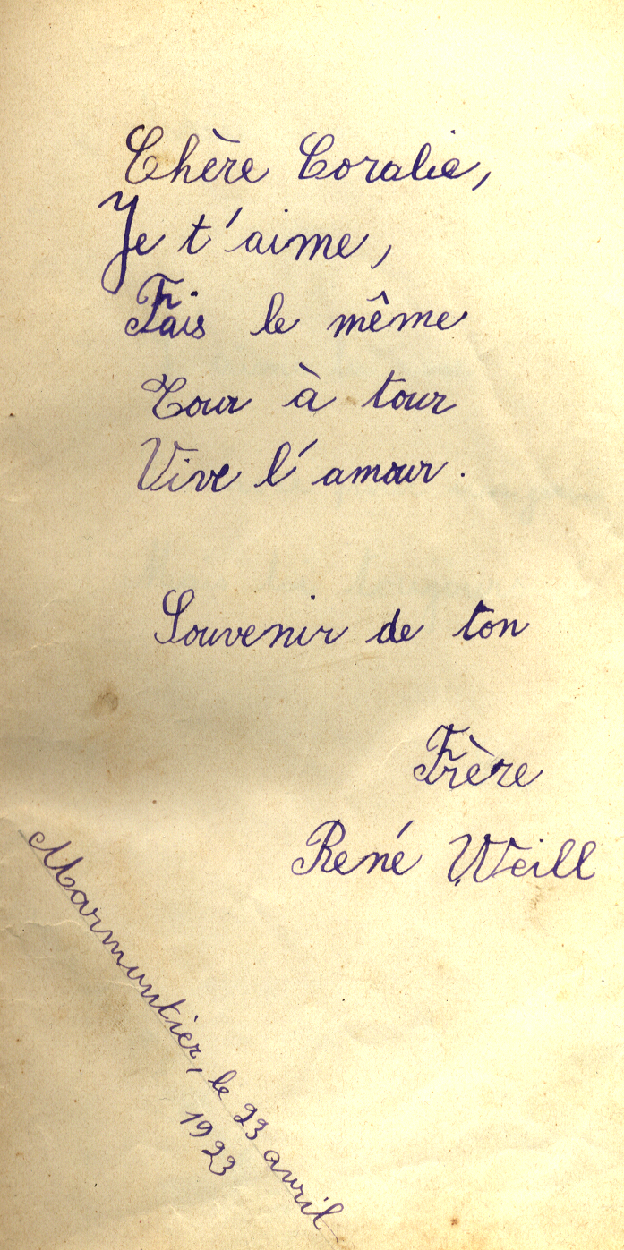 Chère Coralie,
Je t'aime,
Fais le même
Tour à tour
Vive l'amour.
Souvenir de ton
Frère
René Weill
Marmoutier, le 23 avril
1923